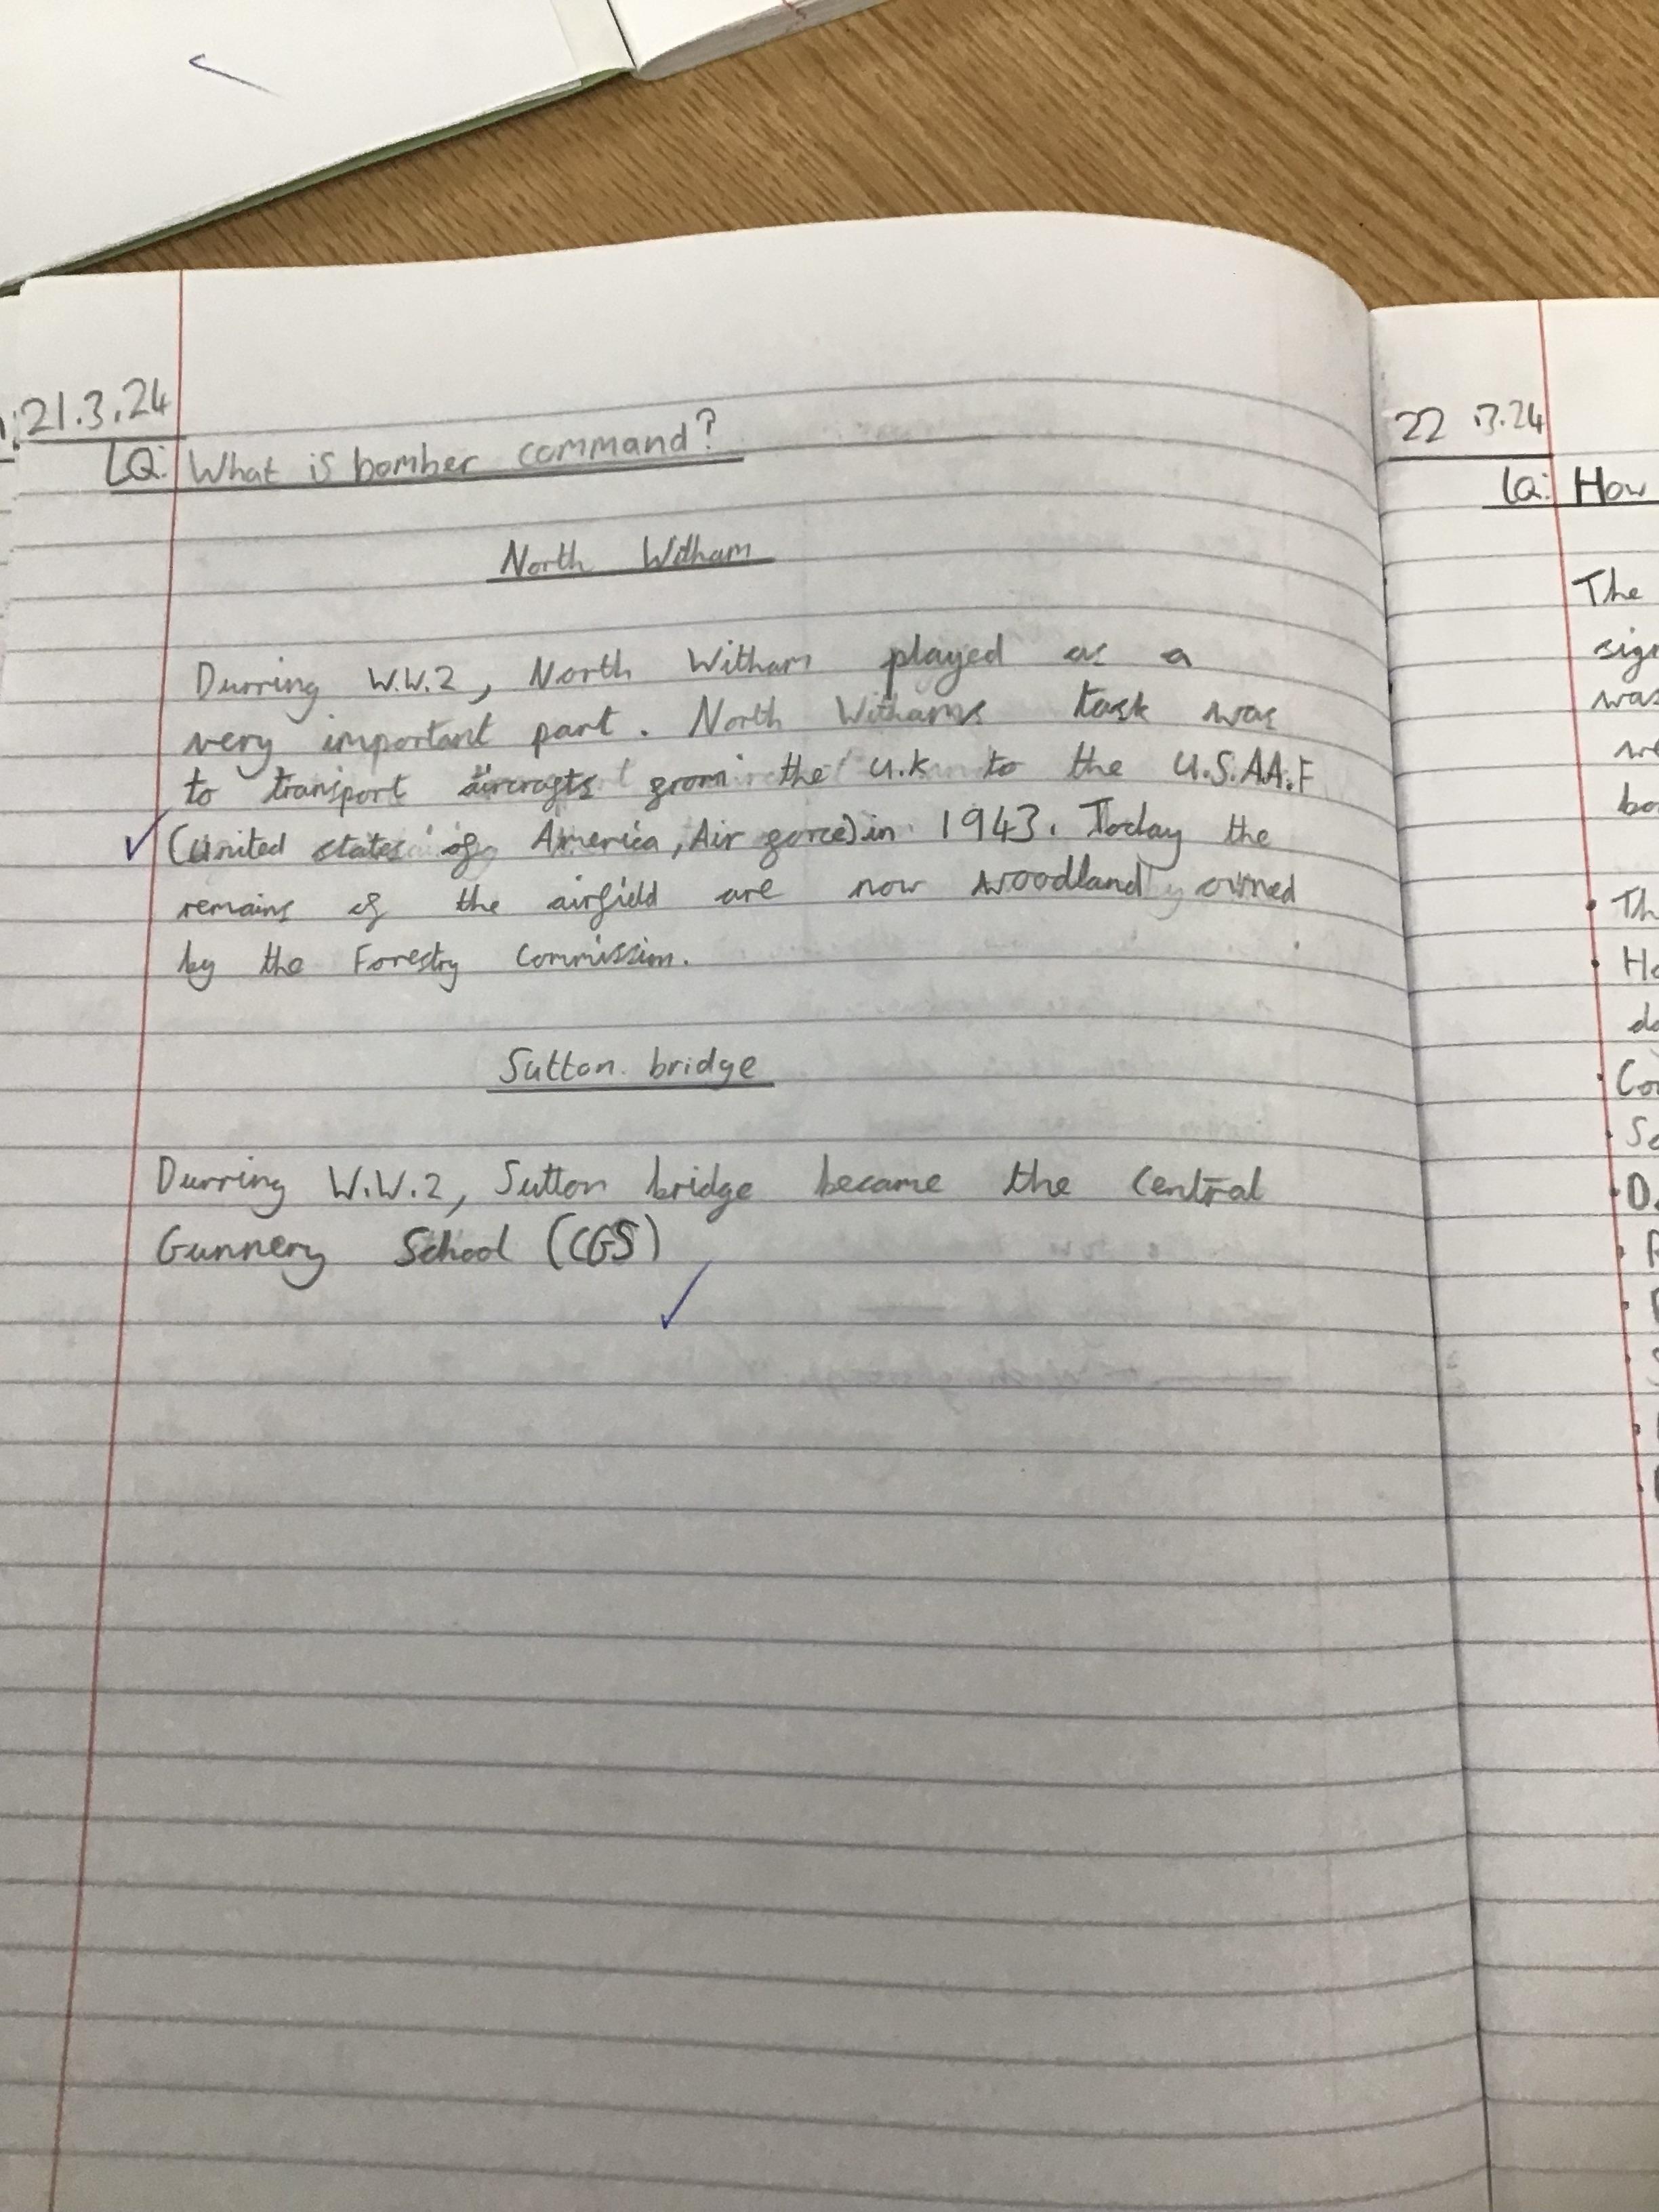 21.3.24
LQ: What is bomber command?
North Witham
Durring W.W.2, North Witham played as a
very important part. North Withams task was
to transport aircrafts from the U.K to the U.S.A.A.F
(United states of America, Air force) in 1943. Today the
remains of the airfield are now woodland owned
by the Forestry Commission.
Sutton bridge
Durring W.W.2, Sutton bridge became the Central
Gunnery School (CGS)
22.3.24
LQ: How
The
was